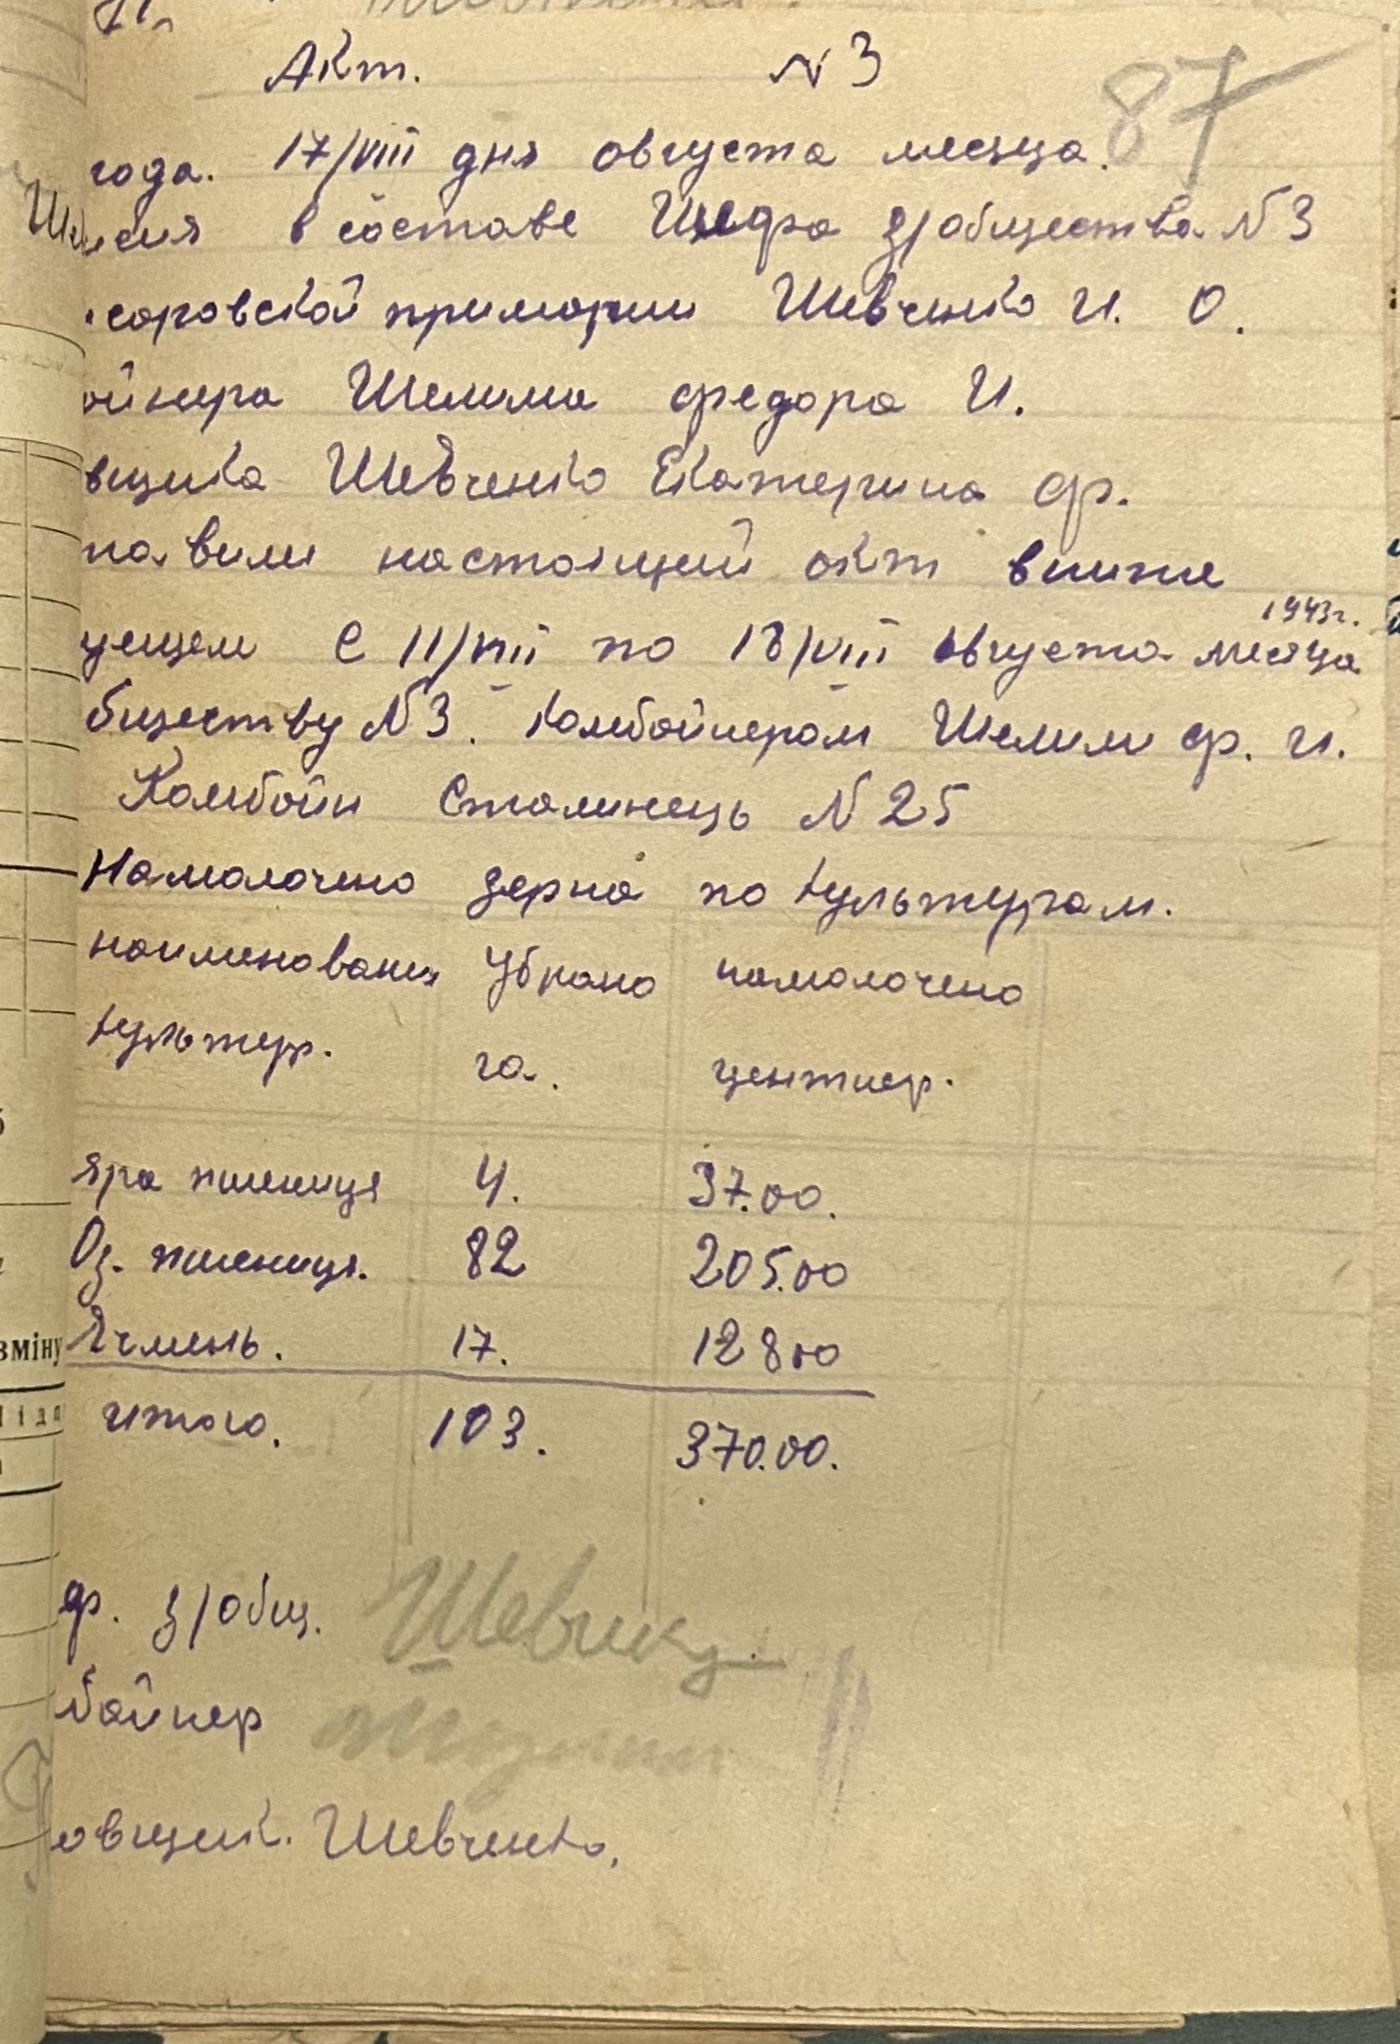 Акт. N 3
87
года. 17/VIII дня августа месяца.
исия в составе Шефа з/общества N 3
соровской примарии Шевченко И. О.
ойнера Шелима Федора И.
вщика Шевченко Екатерина Ф.
тавили настоящий акт в ниже
1943г.
ующем с 11/VIII по 18/VIII августа месяца
бществу N 3. Комбойнером Шелими Ф. И.
Комбойн Сталинець N 25
Намолочено зерна по культурам.
наименования Убрано намолочено
культур. га. центнер.
Яра пшениця 4. 37.00.
Оз. пшениця. 82 205.00
Ячмень. 17. 128 00
итого. 103. 370.00.
ф. з/общ.
бойнер
овщик. Шевченко.
зміну